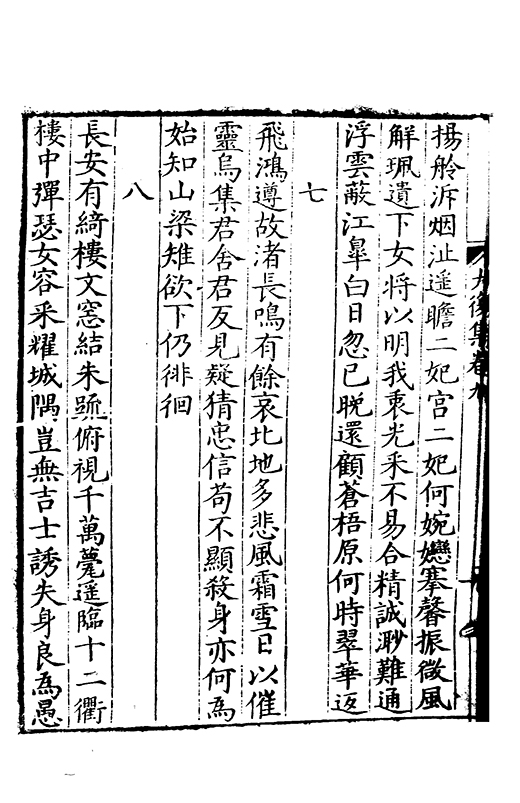 大復集卷九
揚舲泝烟沚遥瞻二妃宫二妃何婉孌搴馨振微風
解珮遺下女將以明我衷光采不易合精誠渺難通
浮雲蔽江臯白日忽已晩還顧蒼梧原何時翠華返
七
飛鴻遵故渚長鳴有餘哀北地多悲風霜雪日以催
靈烏集君舍君反見疑猜忠信苟不顯殺身亦何為
始知山梁雉欲下仍徘徊
八
長安有綺樓文窓結朱䟽俯視千萬甍遥臨十二衢
樓中彈瑟女容采耀城隅豈無吉士誘失身良為愚